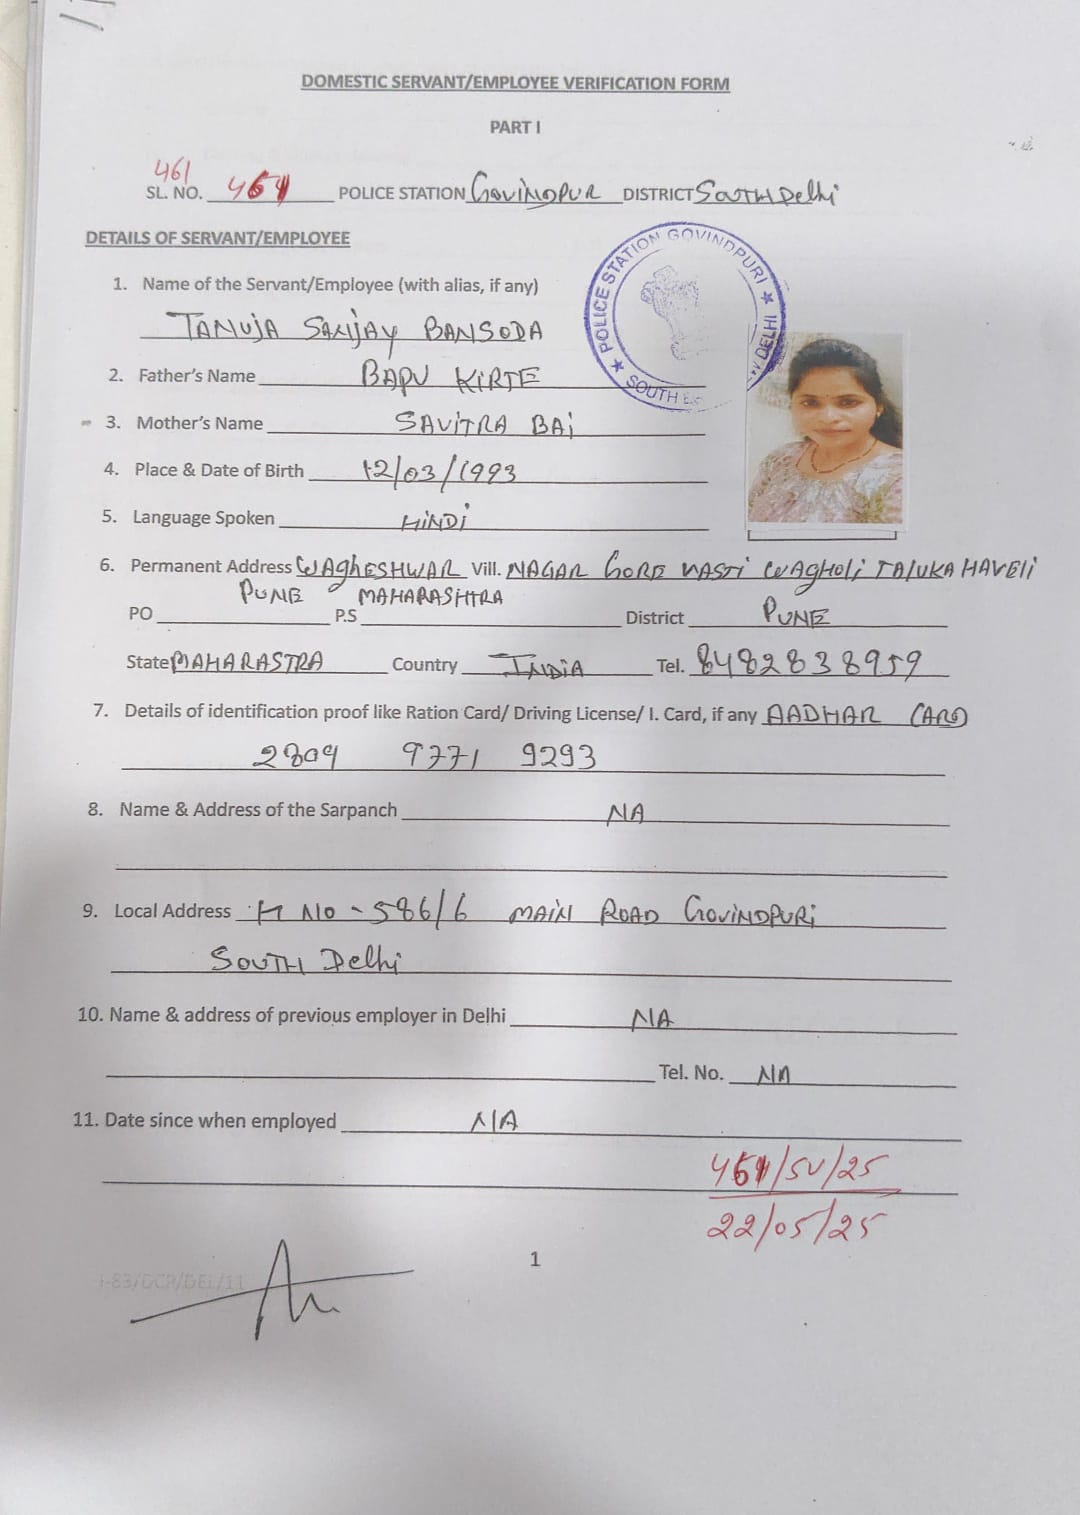 DOMESTIC SERVANT/EMPLOYEE VERIFICATION FORM
PART I
461
SL. NO. 461 POLICE STATION GOVINDPUR DISTRICT SOUTH Delhi
DETAILS OF SERVANT/EMPLOYEE
★ POLICE STATION GOVINDPURI ★ DELHI SOUTH
1. Name of the Servant/Employee (with alias, if any)
TANUJA SANJAY BANSODA
2. Father's Name BAPU KIRTE
3. Mother's Name SAVITRA BAI
4. Place & Date of Birth 12/03/1993
5. Language Spoken HINDI
6. Permanent Address WAGHESHWAR Vill. NAGAR GORE VASTI WAGHOLI TALUKA HAVELI
PUNE MAHARASHTRA
PO P.S District PUNE
State MAHARASTRA Country INDIA Tel. 8482838959
7. Details of identification proof like Ration Card/ Driving License/ I. Card, if any AADHAR CARD
2809 9771 9293
8. Name & Address of the Sarpanch NA
9. Local Address H NO - 586/6 MAIN ROAD GOVINDPURI
SOUTH Delhi
10. Name & address of previous employer in Delhi NA
Tel. No. NA
11. Date since when employed NA
461/SV/25
22/05/25
1